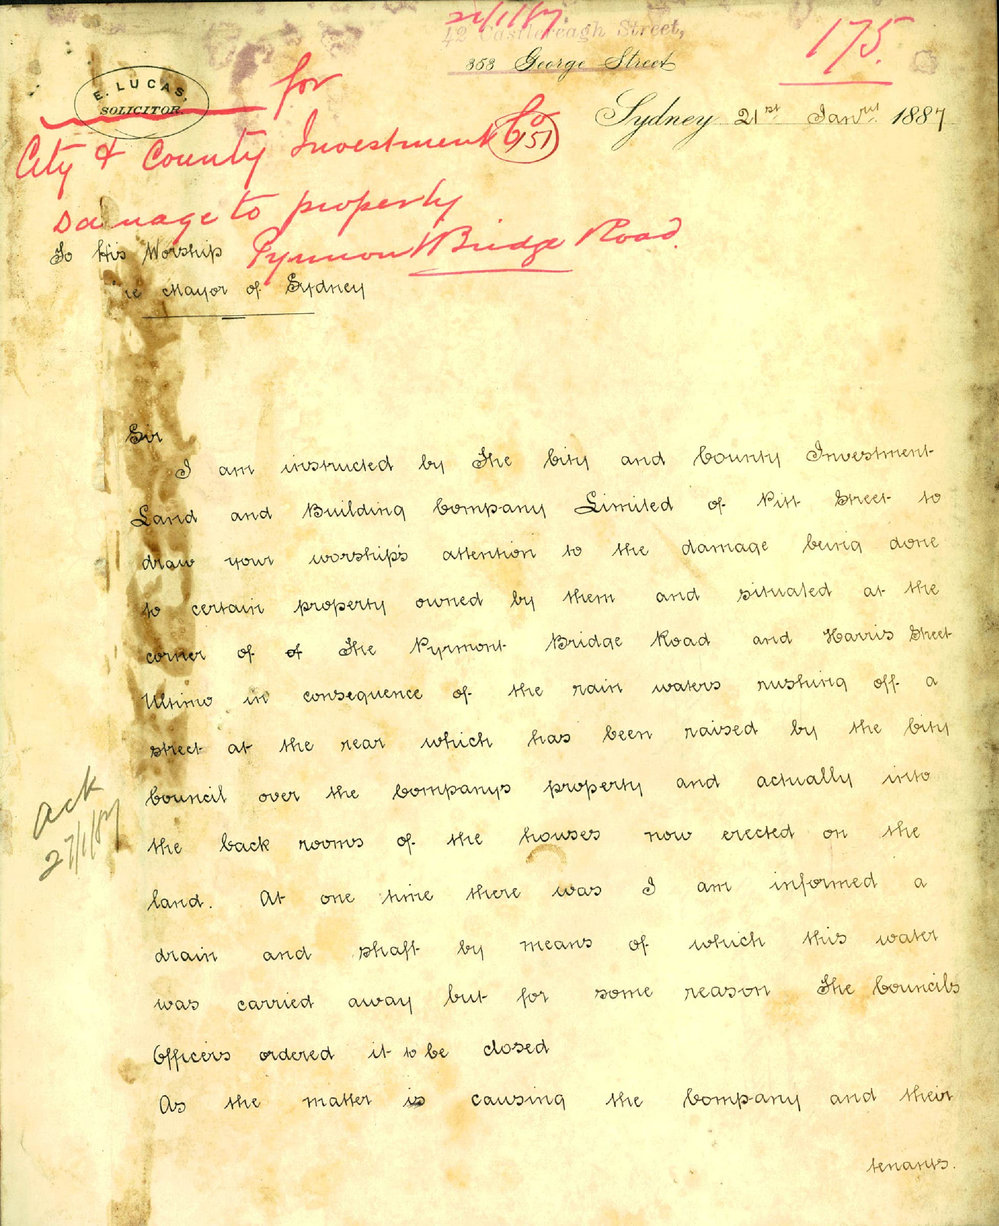 22/1/87.
42 Castlereagh Street,
353 George Street
175.
E. LUCAS,
SOLICITOR.
for
Sydney 21st Janry 1887
City & County Investment Co
151
Damage to property
Pyrmont Bridge Road.
To His Worship
The Mayor of Sydney
Sir
I am instructed by The City and County Investment
Land and Building Company Limited of Pitt Street to
draw your worship's attention to the damage being done
to certain property owned by them and situated at the
corner of of The Pyrmont Bridge Road and Harris Street
Ultimo in consequence of the rain waters rushing off a
street at the rear which has been raised by the City
Council over the Companys property and actually into
the back rooms of the houses now erected on the
land. At one time there was I am informed a
drain and shaft by means of which this water
was carried away but for some reason The Councils
Officers ordered it to be closed
As the matter is causing the Company and their
tenants.
Ack
27/1/87